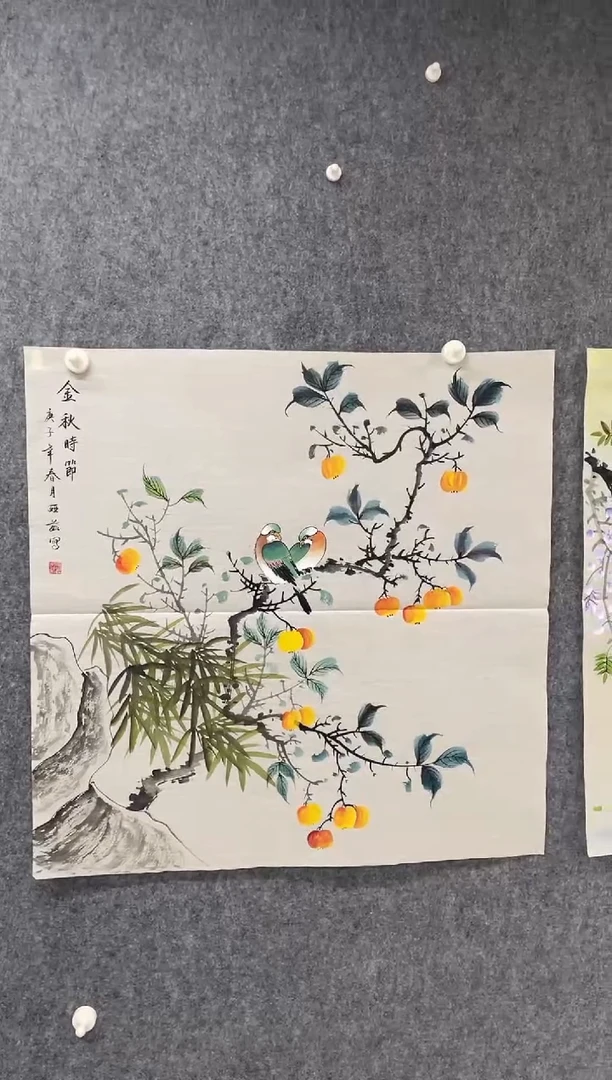 金秋時節
庚子年春月